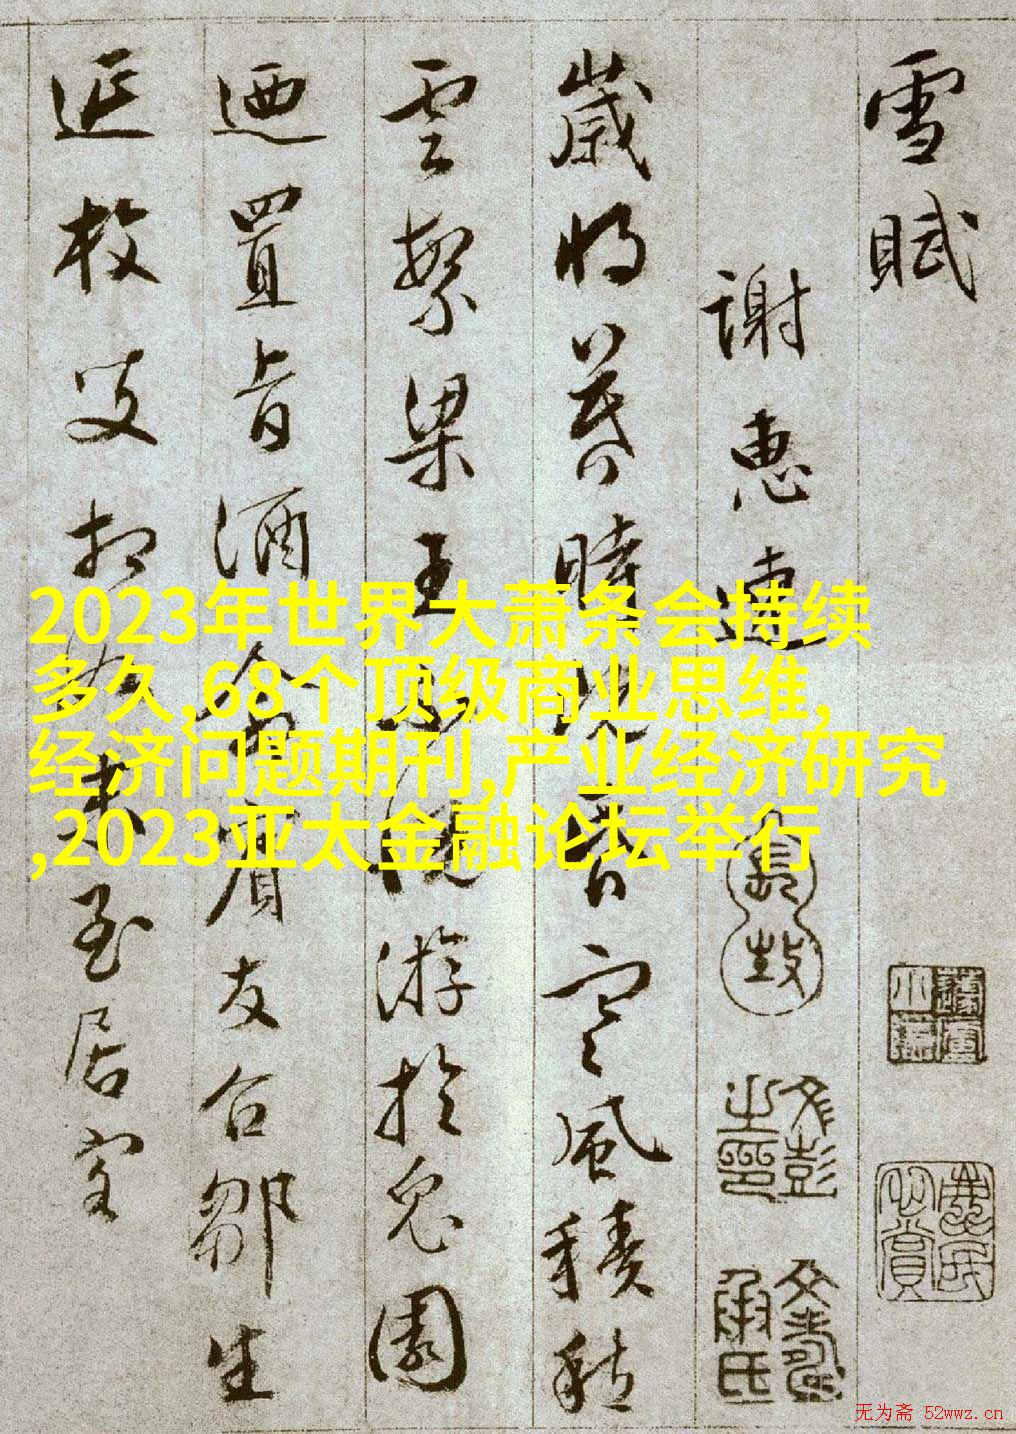 雪賦
謝惠連
歲將暮時既昏寒風積愁
雲繁梁王不悅游於兔園
迺置旨酒命賓友召鄒生
延枚叟相如末至居客
2023年世界大萧条会持续
多久,68个顶级商业思维,
经济问题期刊,产业经济研究
,2023亚太金融论坛举行
无为斋 52wwz.cn